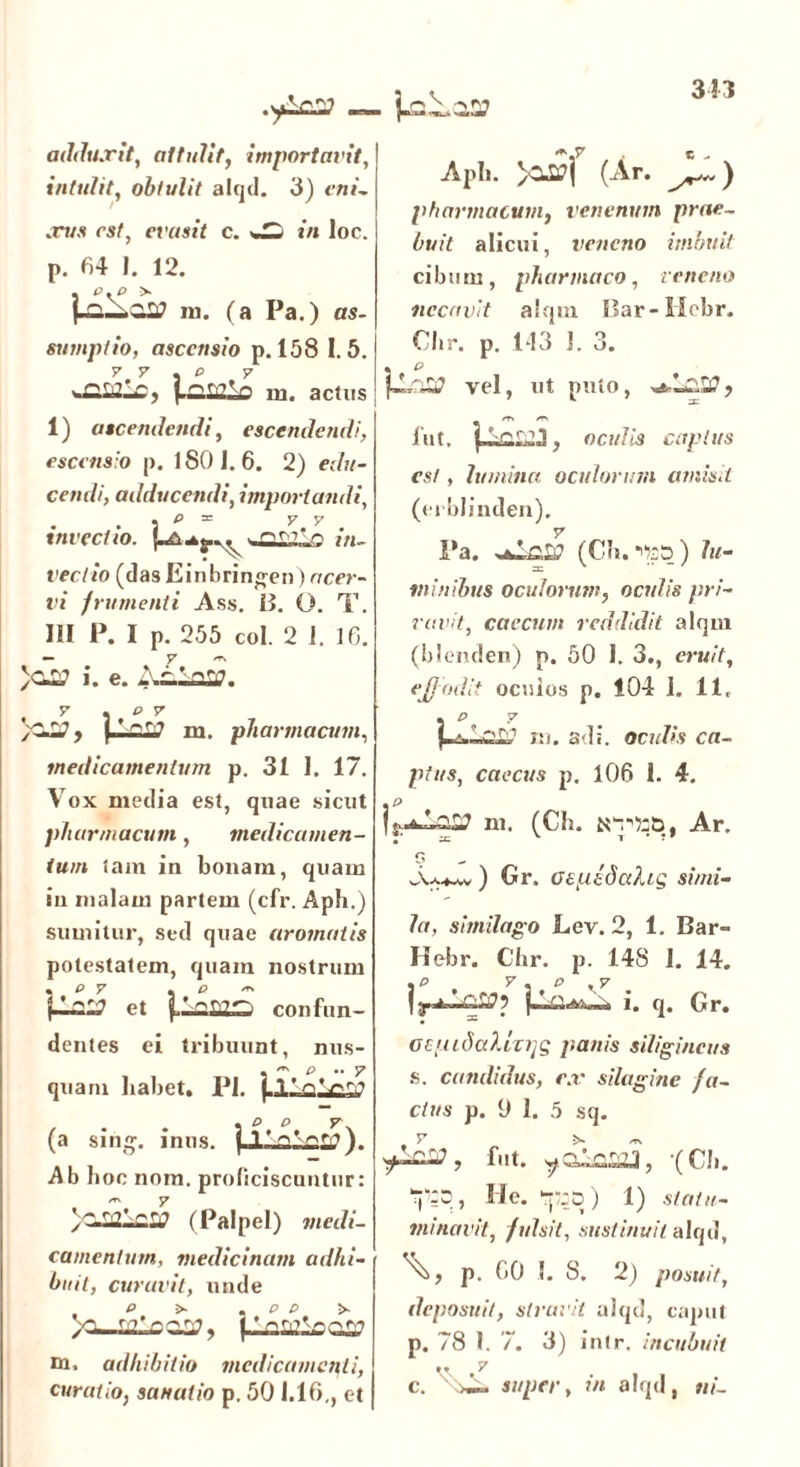 ܣܡܟ. — ܣܘܠܩܐ 343
adduxit, attulit, importavit,
intulit, obtulit alqd. 3) eni-
xus est, evasit c. ܒ in loc.
p. 64 l. 12.
ܣܘܠܩܐ m. (a Pa.) as-
sumptio, ascensio p. 158 l. 5.
ܡܣܩ, ܡܣܩܐ m. actus
1) ascendendi, escendendi,
escensio p. 180 l. 6. 2) edu-
cendi, adducendi, importandi,
invectio. ܡܣܩ ܓܕܝܫܐ in-
vectio (das Einbringen) acer-
vi frumenti Ass. B. O. T.
III P. I p. 255 col. 2 l. 16.
ܣܡ i. e.
ܣܡ, ܣܡܐ m. pharmacum,
medicamentum p. 31 l. 17.
Vox media est, quae sicut
pharmacum, medicamen-
tum tam in bonam, quam
in malam partem (cfr. Aph.)
sumitur, sed quae aromatis
potestatem, quam nostrum
ܣܡܐ et ܒܣܡܐ confun-
dentes ei tribuunt, nus-
quam habet. Pl. ܣܡܡܢܐ
(a sing. inus. ܣܡܡܢܐ).
Ab hoc nom. proficiscuntur:
ܣܡܣܡ (Palpel) medi-
camentum, medicinam adhi-
buit, curavit, unde
ܣܘܡܣܡ, ܣܘܡܣܡܐ
m. adhibitio medicamenti,
curatio, sanatio p. 50 l.16., et
Aph. ܐܣܡ (Ar. سمّ)
pharmacum, venenum prae-
buit alicui, veneno imbuit
cibum, pharmaco, veneno
necavit alqm Bar-Hebr.
Chr. p. 143 l. 3.
ܣܡܐ vel, ut puto, ܣܡܝ,
fut. ܢܣܡܐ, oculis captus
est, lumina oculorum amisit
(erblinden).
Pa. ܣܡܝ (Ch. סמי) lu-
minibus oculorum, oculis pri-
vavit, caecum reddidit alqm
(blenden) p. 50 l. 3., eruit,
effodit oculos p. 104 l. 11.
ܣܡܝܐ m. adi. oculis ca-
ptus, caecus p. 106 l. 4.
ܣܡܝܕܐ m. (Ch. סמידא, Ar.
سميذ) Gr. σεμίδαλις simi-
la, similago Lev. 2, 1. Bar-
Hebr. Chr. p. 148 l. 14.
ܠܚܡܐ ܕܣܡܝܕܐ i. q. Gr.
σεμιδαλίτης panis siligineus
s. candidus, ex silagine fa-
ctus p. 9 l. 5 sq.
ܣܡܟ, fut. ܢܣܡܘܟ, (Ch.
סמך, He. סמך) 1) statu-
minavit, fulsit, sustinuit alqd,
ܠ, p. 60 l. 8. 2) posuit,
deposuit, stravit alqd, caput
p. 78 l. 7. 3) intr. incubuit
c. ܥܠ super, in alqd, ni-